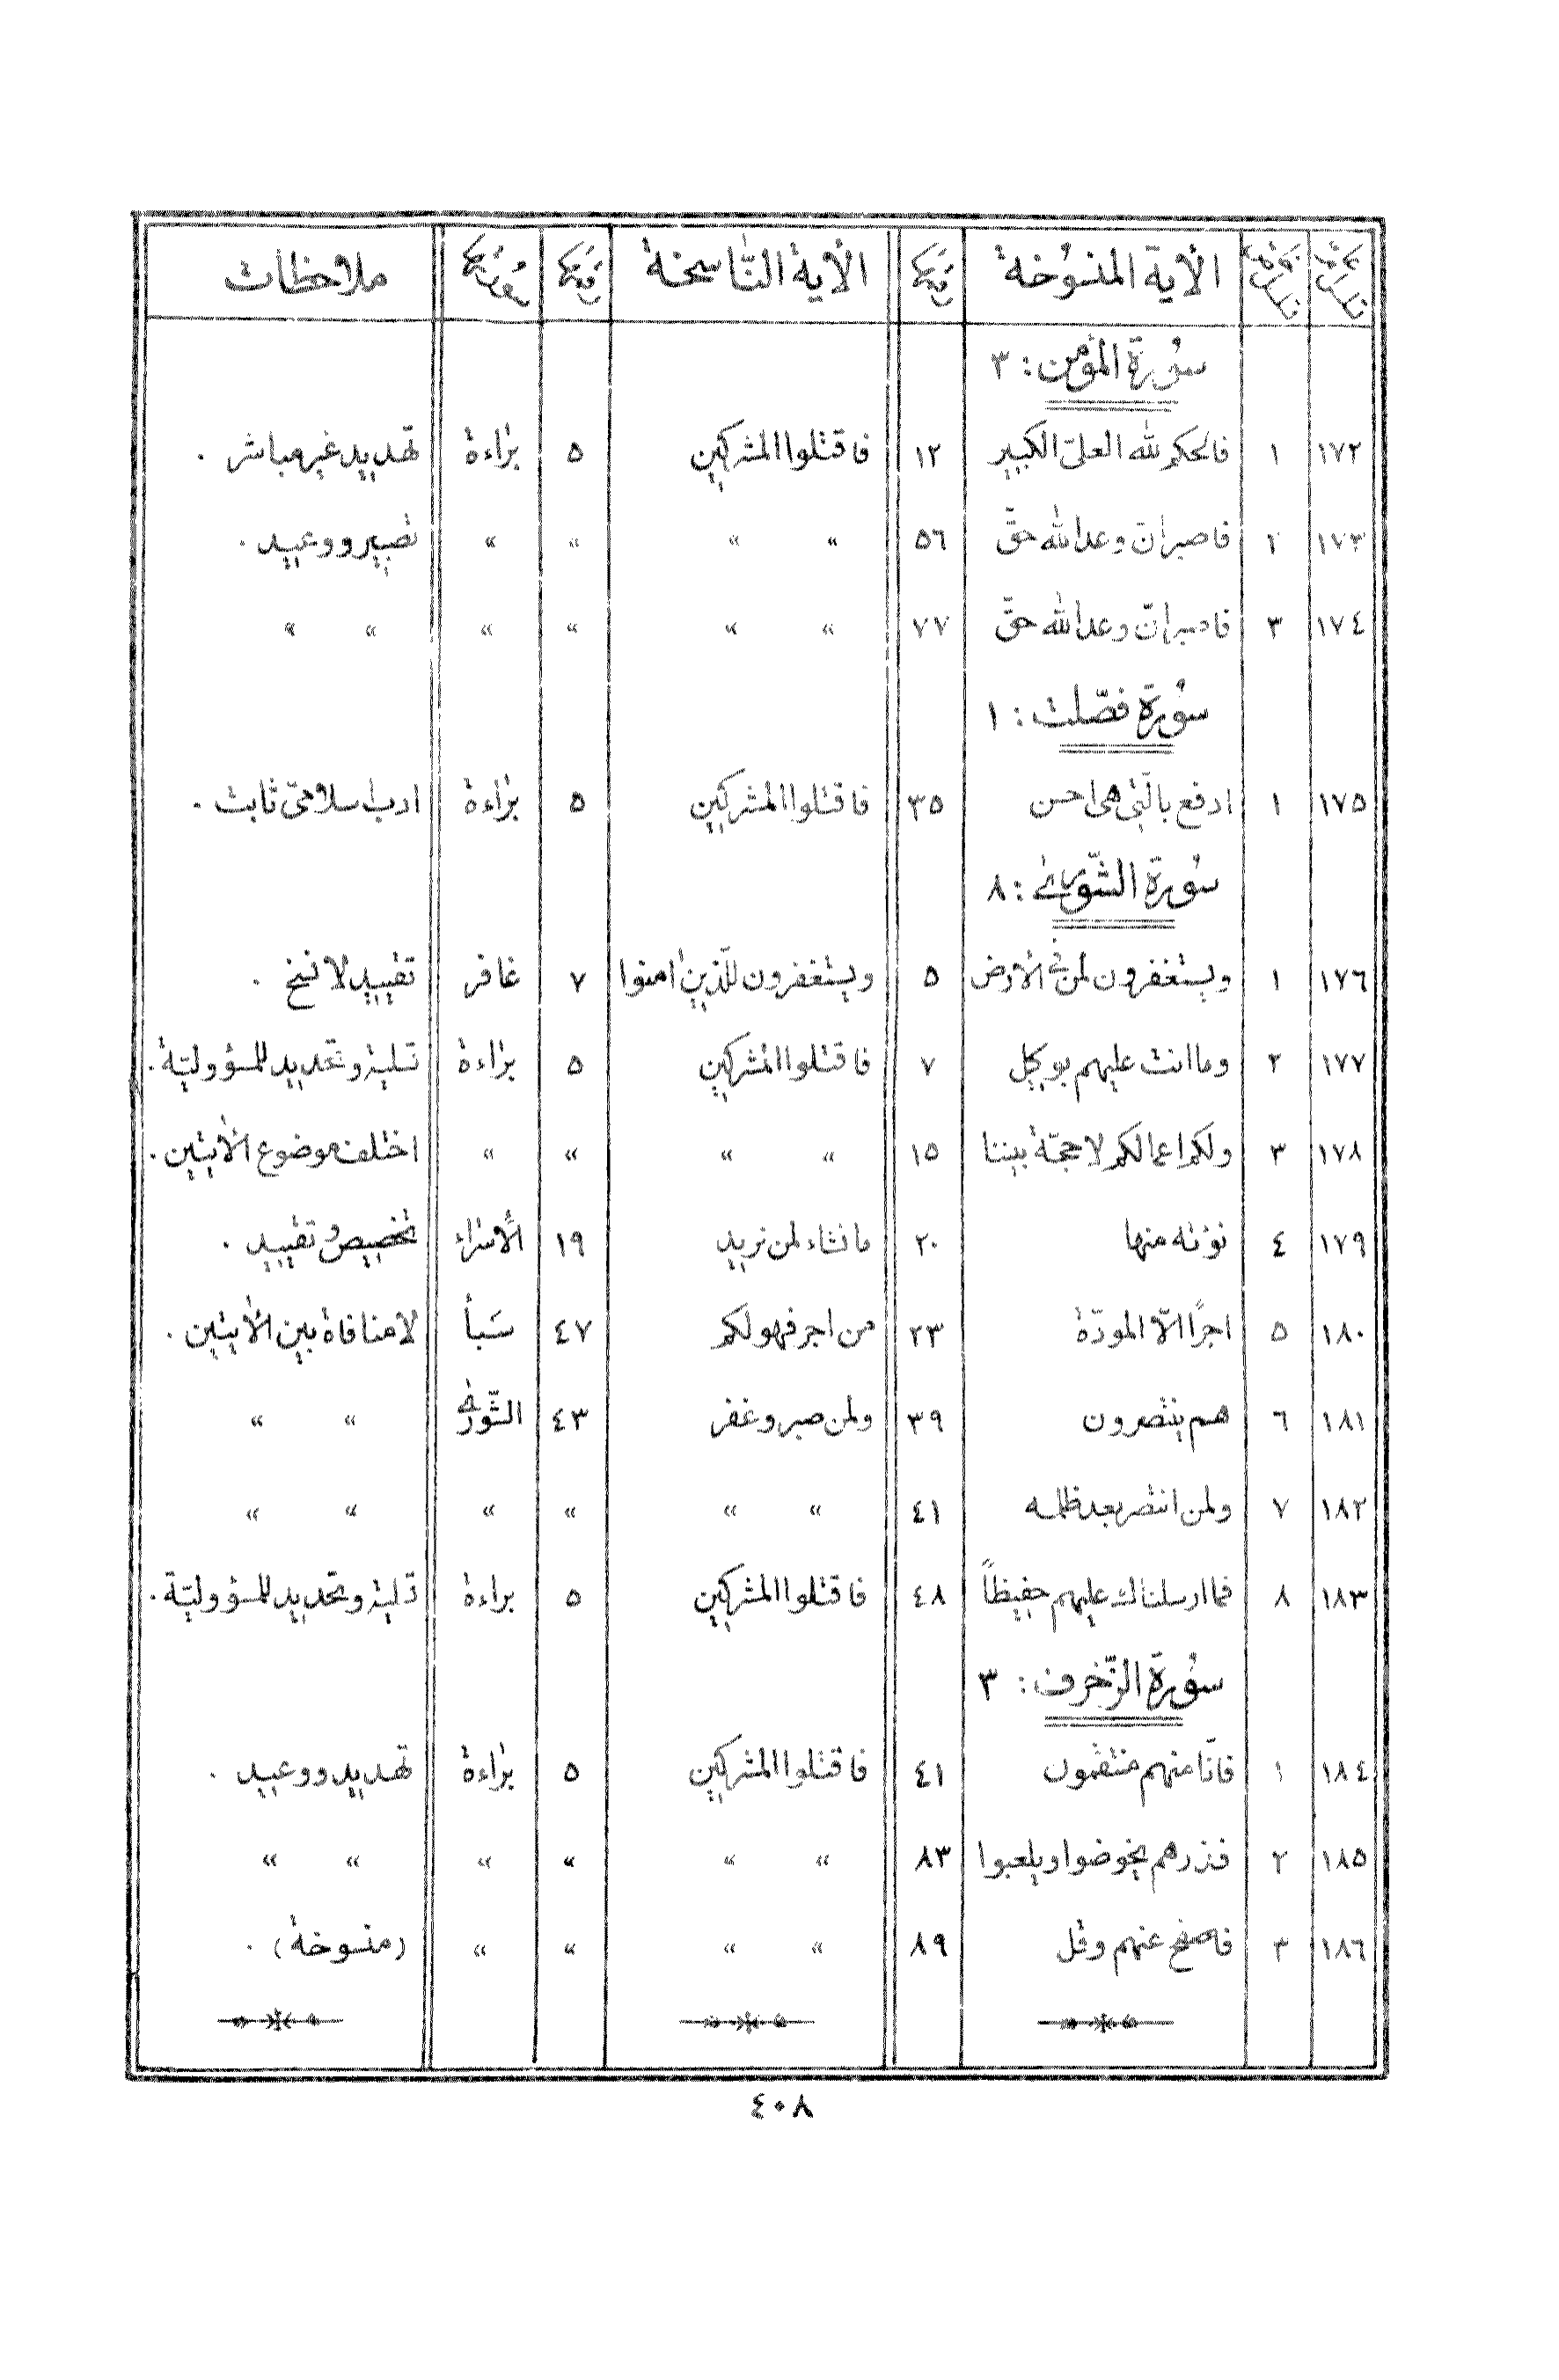 الآية المنسوخة رقمها الآية الناسخة رقمها سورتها ملاحظات
سورة المؤمن : ٣
١٧٢ ١ فالحكم لله العليّ الكبير ١٢ فاقتلوا المشركين ٥ براءة تهديد غير مباشر .
١٧٣ ٢ فاصبر انّ وعد الله حقّ ٥٦ " " " " تصبير ووعيد .
١٧٤ ٣ فاصبر انّ وعد الله حقّ ٧٧ " " " " " "
سورة فصّلت : ١
١٧٥ ١ ادفع بالّتي هي احسن ٣٥ فاقتلوا المشركين ٥ براءة ادب اسلاميّ ثابت .
سورة الشّورى : ٨
١٧٦ ١ ويستغفرون لمن في الأرض ٥ ويستغفرون للّذين امنوا ٧ غافر تقييد لا نسخ .
١٧٧ ٢ وما انت عليهم بوكيل ٧ فاقتلوا المشركين ٥ براءة تسلية وتحديد للمسؤوليّة .
١٧٨ ٣ ولكم اعمالكم لا حجّة بيننا ١٥ " " " " اختلف موضوع الأيتين .
١٧٩ ٤ نؤته منها ٢٠ ما نشاء لمن نريد ١٩ الأسراء تخصيص وتقييد .
١٨٠ ٥ اجرًا الّا المودّة ٢٣ من اجر فهو لكم ٤٧ سَبأ لا منافاة بين الأيتين .
١٨١ ٦ هم ينتصرون ٣٩ ولمن صبر وغفر ٤٣ الشّورى " "
١٨٢ ٧ ولمن انتصر بعد ظلمه ٤١ " " " " " "
١٨٣ ٨ فما ارسلناك عليهم حفيظاً ٤٨ فاقتلوا المشركين ٥ براءة تسلية وتحديد للمسؤوليّة .
سورة الزّخرف : ٣
١٨٤ ١ فانّا منهم منتقمون ٤١ فاقتلوا المشركين ٥ براءة تهديد ووعيد .
١٨٥ ٢ فذرهم يخوضوا ويلعبوا ٨٣ " " " " " "
١٨٦ ٣ فاصفح عنهم وقل ٨٩ " " " " (منسوخة) .
٤٠٨